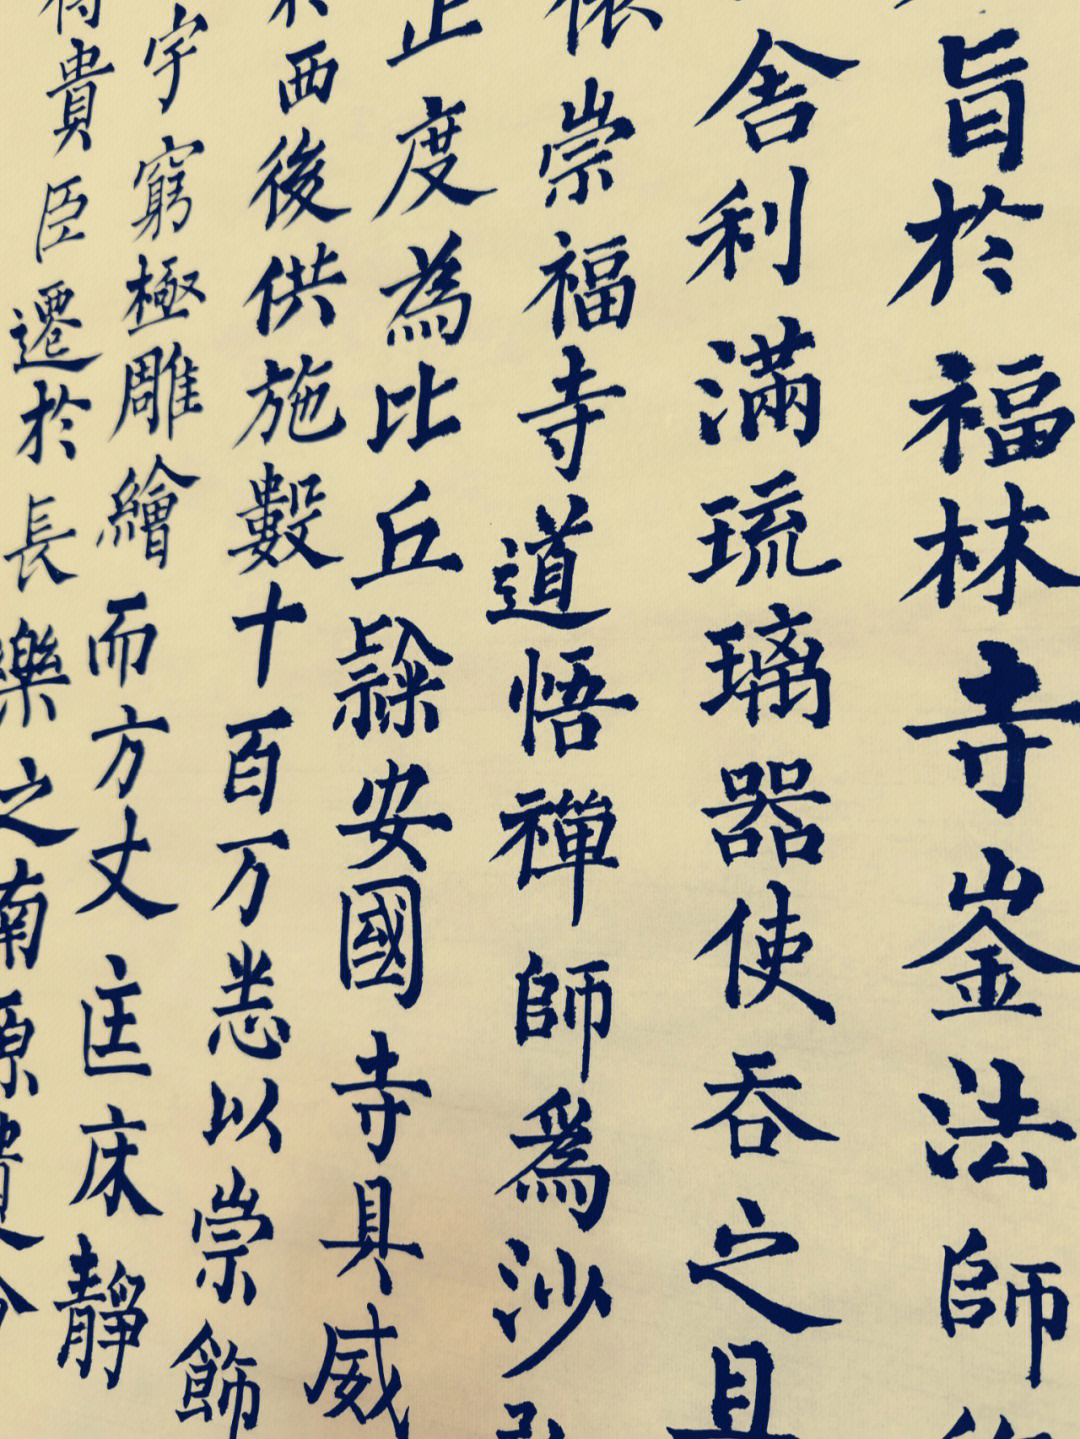 旨於福林寺崟法師
舍利滿琉璃器使吞之且
懷崇福寺道悟禪師為沙弘
正度為比丘隸安國寺具威
西後供施數十百万悉以崇飾
宇窮極雕繪而方丈匡床靜
貴臣遷於長樂之南原